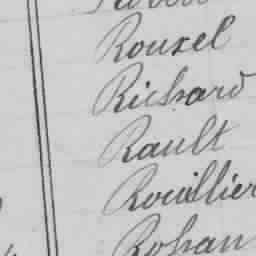 Rouxel
Richard
Rault
Rouillier
Rohan